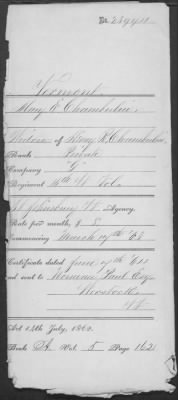 Vermont.
Mary E. Chamberlin,
Widow of Henry R. Chamberlin,
Rank Private
Company "G"
Regiment 16th Vt Vol.
St Johnsbury Vt Agency.
Rate per month, $ 8
Commencing March 17th '63
Certificate dated June 17th '64
and sent to Norman Paul Esq
Woodstock
Vt
Act 14th July, 1862.
Book Vol. 5 Page 162